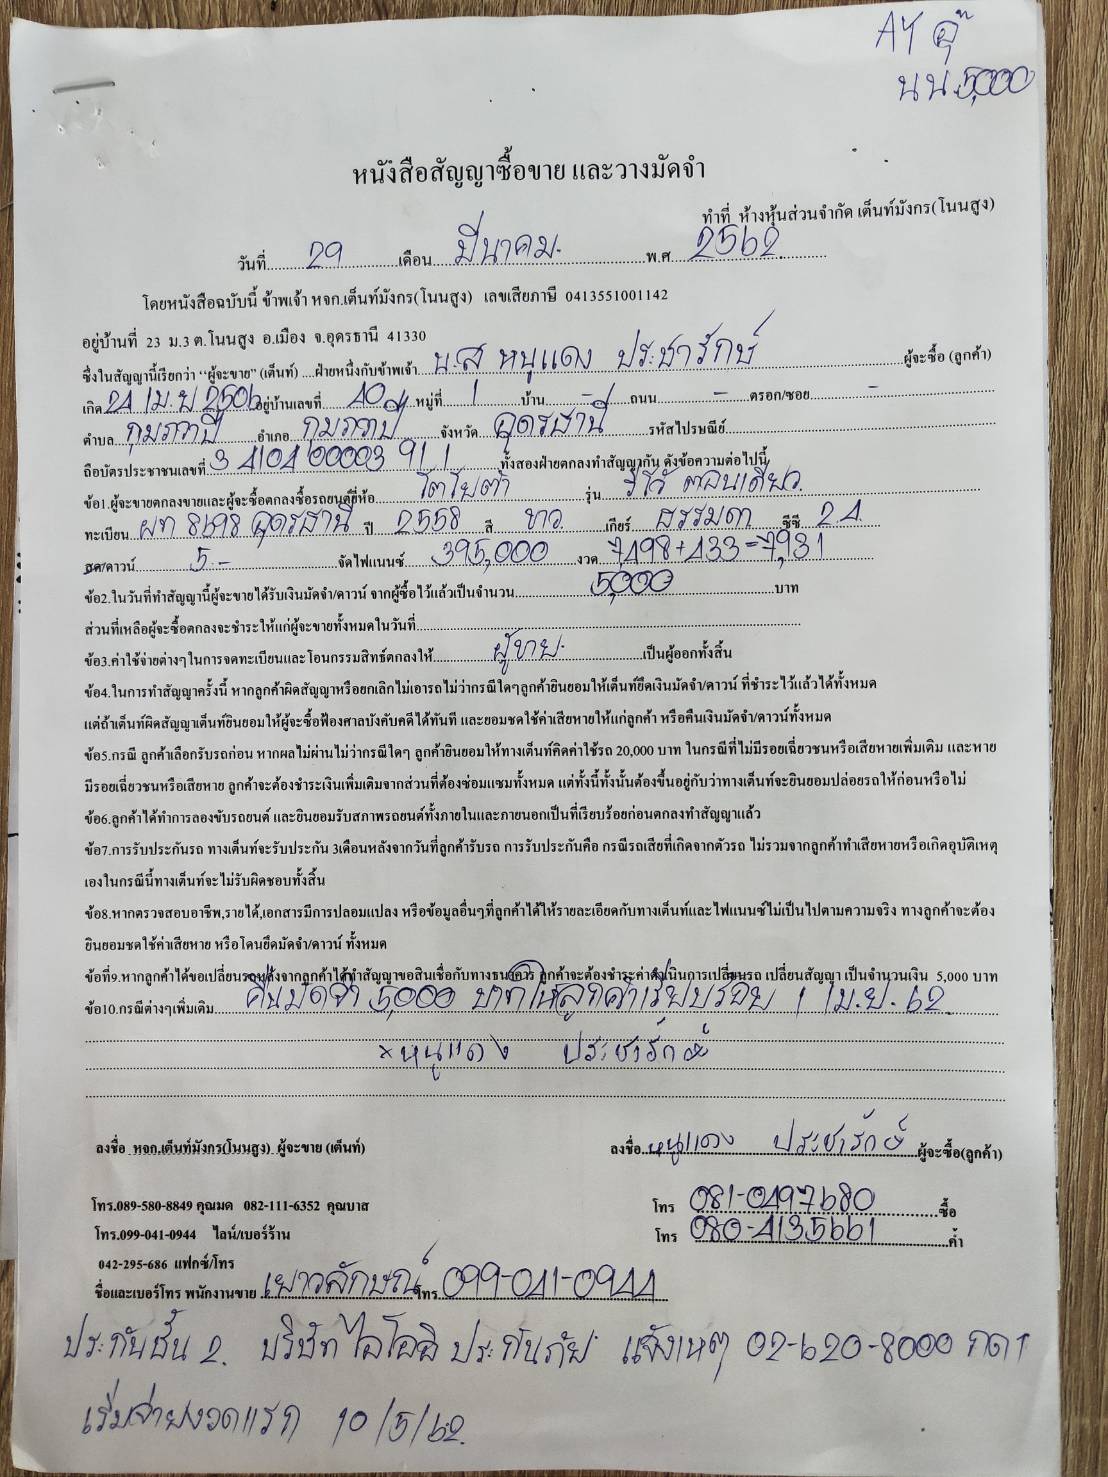 AY อุ๊
นน 5,000
หนังสือสัญญาซื้อขาย และวางมัดจำ
ทำที่ ห้างหุ้นส่วนจำกัด เต็นท์มังกร(โนนสูง)
วันที่ 29 เดือน มีนาคม. พ.ศ 2562
โดยหนังสือฉบับนี้ ข้าพเจ้า หจก.เต็นท์มังกร(โนนสูง) เลขเสียภาษี 0413551001142
อยู่บ้านที่ 23 ม.3 ต.โนนสูง อ.เมือง จ.อุดรธานี 41330
ซึ่งในสัญญานี้เรียกว่า "ผู้จะขาย" (เต็นท์) ....ฝ่ายหนึ่งกับข้าพเจ้า น.ส หนูแดง ประชารักษ์ ผู้จะซื้อ (ลูกค้า)
เกิด 24 เม.ย 2506 อยู่บ้านเลขที่ 40 หมู่ที่ 1 บ้าน - ถนน - ตรอก/ซอย -
ตำบล กุมภวาปี อำเภอ กุมภวาปี จังหวัด อุดรธานี รหัสไปรษณีย์
ถือบัตรประชาชนเลขที่ 3 4104 00003 91 1 ทั้งสองฝ่ายตกลงทำสัญญากัน ดังข้อความต่อไปนี้
ข้อ1.ผู้จะขายตกลงขายและผู้จะซื้อตกลงซื้อรถยนต์ยี่ห้อ โตโยต้า รุ่น รีโว้ ตอนเดียว.
ทะเบียน ผท 8698 อุดรธานี ปี 2558 สี ขาว. เกียร์ ธรรมดา ซีซี 2.4
สด/ดาวน์ 5.- จัดไฟแนนซ์ 395,000 งวด 7498+433=7,931
ข้อ2.ในวันที่ทำสัญญานี้ผู้จะขายได้รับเงินมัดจำ/ดาวน์ จากผู้ซื้อไว้แล้วเป็นจำนวน 5,000 บาท
ส่วนที่เหลือผู้จะซื้อตกลงจะชำระให้แก่ผู้จะขายทั้งหมดในวันที่
ข้อ3.ค่าใช้จ่ายต่างๆในการจดทะเบียนและโอนกรรมสิทธ์ตกลงให้ ผู้ขาย. เป็นผู้ออกทั้งสิ้น
ข้อ4.ในการทำสัญญาครั้งนี้ หากลูกค้าผิดสัญญาหรือยกเลิกไม่เอารถไม่ว่ากรณีใดๆลูกค้ายินยอมให้เต็นท์ยึดเงินมัดจำ/ดาวน์ ที่ชำระไว้แล้วได้ทั้งหมด
แต่ถ้าเต็นท์ผิดสัญญาเต็นท์ยินยอมให้ผู้จะซื้อฟ้องศาลบังคับคดีได้ทันที และยอมชดใช้ค่าเสียหายให้แก่ลูกค้า หรือคืนเงินมัดจำ/ดาวน์ทั้งหมด
ข้อ5.กรณี ลูกค้าเลือกรับรถก่อน หากผลไม่ผ่านไม่ว่ากรณีใดๆ ลูกค้ายินยอมให้ทางเต็นท์คิดค่าใช้รถ 20,000 บาท ในกรณีที่ไม่มีรอยเฉี่ยวชนหรือเสียหายเพิ่มเติม และหาย
มีรอยเฉี่ยวชนหรือเสียหาย ลูกค้าจะต้องชำระเงินเพิ่มเติมจากส่วนที่ต้องซ่อมแซมทั้งหมด แต่ทั้งนี้ทั้งนั้นต้องขึ้นอยู่กับว่าทางเต็นท์จะยินยอมปล่อยรถให้ก่อนหรือไม่
ข้อ6.ลูกค้าได้ทำการลองขับรถยนต์ และยินยอมรับสภาพรถยนต์ทั้งภายในและภายนอกเป็นที่เรียบร้อยก่อนตกลงทำสัญญาแล้ว
ข้อ7.การรับประกันรถ ทางเต็นท์จะรับประกัน 3เดือนหลังจากวันที่ลูกค้ารับรถ การรับประกันคือ กรณีรถเสียที่เกิดจากตัวรถ ไม่รวมจากลูกค้าทำเสียหายหรือเกิดอุบัติเหตุ
เองในกรณีนี้ทางเต็นท์จะไม่รับผิดชอบทั้งสิ้น
ข้อ8.หากตรวจสอบอาชีพ,รายได้,เอกสารมีการปลอมแปลง หรือข้อมูลอื่นๆที่ลูกค้าได้ให้รายละเอียดกับทางเต็นท์และไฟแนนซ์ไม่เป็นไปตามความจริง ทางลูกค้าจะต้อง
ยินยอมชดใช้ค่าเสียหาย หรือโดนยึดมัดจำ/ดาวน์ ทั้งหมด
ข้อที่9.หากลูกค้าได้ขอเปลี่ยนรถหลังจากลูกค้าได้ทำสัญญาขอสินเชื่อกับทางธนาคาร ลูกค้าจะต้องชำระค่าดำเนินการเปลี่ยนรถ เปลี่ยนสัญญา เป็นจำนวนเงิน 5,000 บาท
ข้อ10.กรณีต่างๆเพิ่มเติม คืนมัดจำ 5,000 บาทให้ลูกค้าเรียบร้อย 1 เม.ย. 62
× หนูแดง ประชารักษ์
ลงชื่อ หจก.เต็นท์มังกร(โนนสูง) ผู้จะขาย (เต็นท์) ลงชื่อ หนูแดง ประชารักษ์ ผู้จะซื้อ(ลูกค้า)
โทร.089-580-8849 คุณมด 082-111-6352 คุณบาส โทร 081-0497680 ซื้อ
โทร.099-041-0944 ไลน์/เบอร์ร้าน โทร 080-4135661 ค้ำ
042-295-686 แฟกซ์/โทร
ชื่อและเบอร์โทร พนักงานขาย เยาวลักษณ์ โทร 099-041-0944
ประกันชั้น 2. บริษัท ไอโออิ ประกันภัย แจ้งเหตุ 02-620-8000 กด 1
เริ่มจ่ายงวดแรก 10/5/62